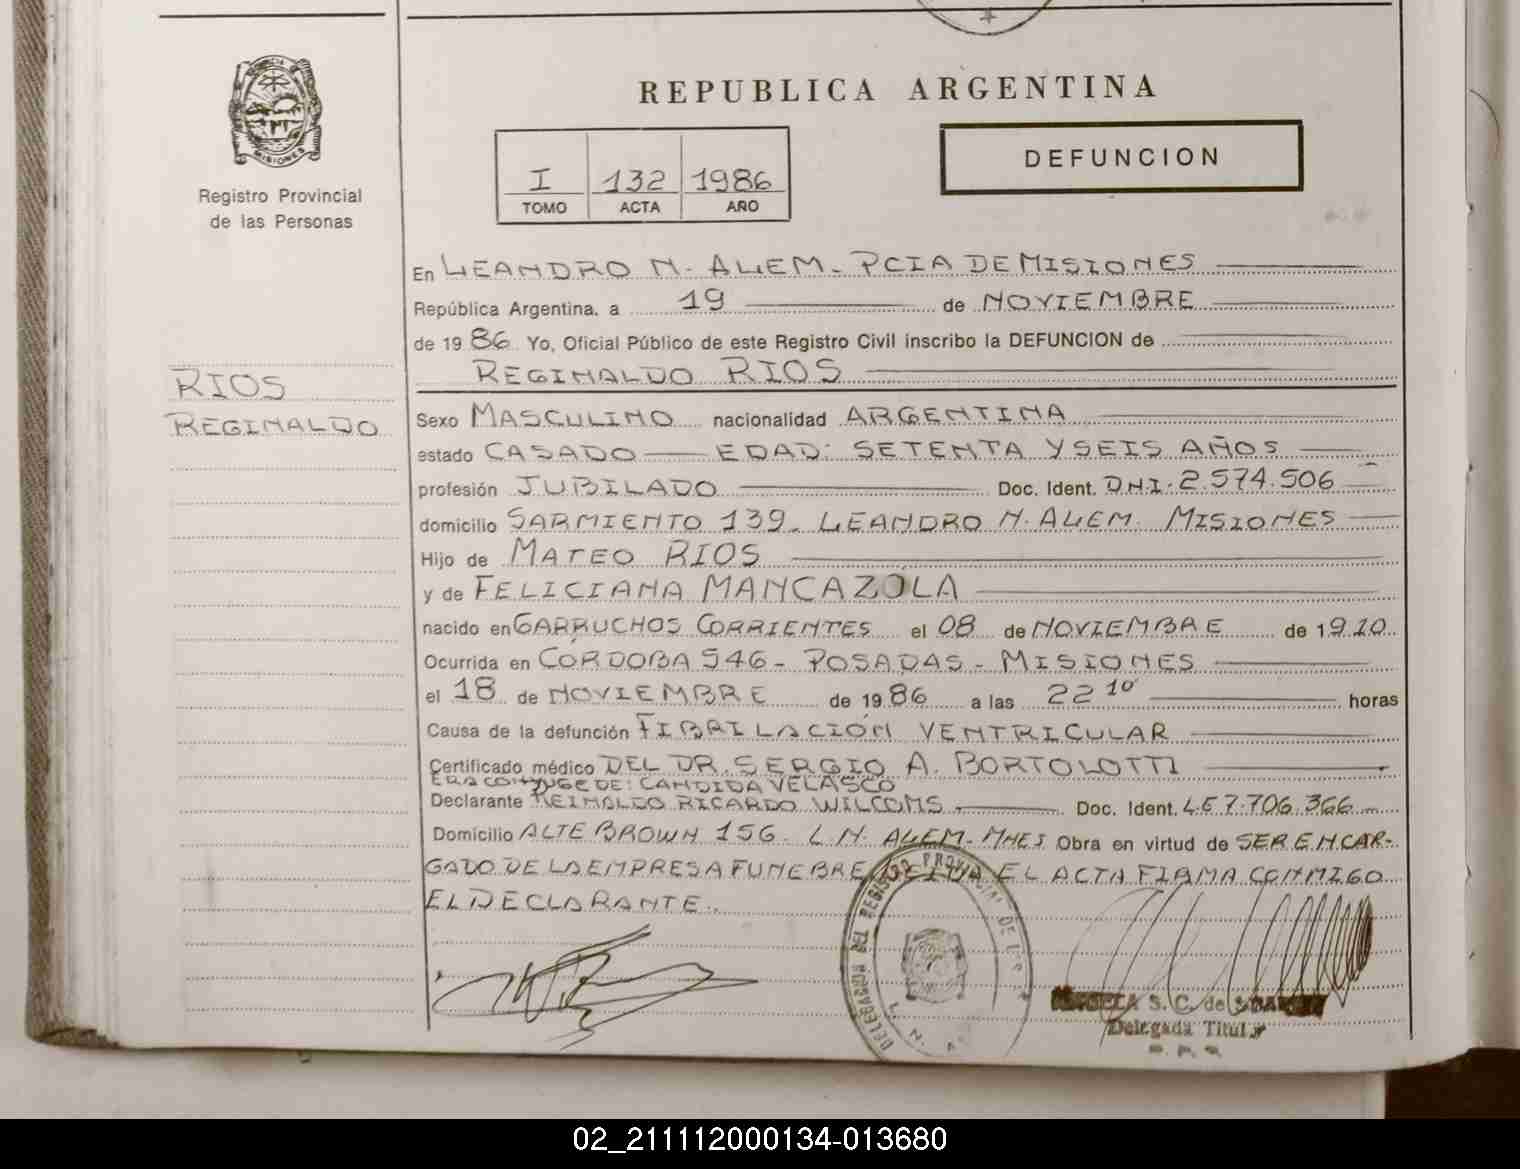 REPUBLICA ARGENTINA
MISIONES
Registro Provincial
de las Personas
DEFUNCION
I 132 1986
TOMO ACTA AÑO
En LEANDRO N. ALEM - PCIA DE MISIONES
República Argentina, a 19 de NOVIEMBRE
de 1986 Yo, Oficial Público de este Registro Civil inscribo la DEFUNCION de
REGINALDO RIOS
RIOS
REGINALDO
Sexo MASCULINO nacionalidad ARGENTINA
estado CASADO — EDAD: SETENTA Y SEIS AÑOS
profesión JUBILADO Doc. Ident. DNI. 2.574.506
domicilio SARMIENTO 139 - LEANDRO N. ALEM. MISIONES
Hijo de MATEO RIOS
y de FELICIANA MANCAZOLA
nacido en GARRUCHOS CORRIENTES el 08 de NOVIEMBRE de 1910
Ocurrida en CORDOBA 546 - POSADAS - MISIONES
el 18 de NOVIEMBRE de 1986 a las 22 10' horas
Causa de la defunción FIBRILACIÓN VENTRICULAR
Certificado médico DEL DR. SERGIO A. BORTOLOTTI
ERA CONYUGE DE: CANDIDA VELASCO
Declarante REINALDO RICARDO WILCOMS Doc. Ident. L.E 7.706.366
Domicilio ALTE BROWN 156 - L.N. ALEM - MNES Obra en virtud de SER ENCAR-
GADO DE LA EMPRESA FUNEBRE, LEIDA EL ACTA FIRMA CONMIGO
EL DECLARANTE.
DELEGACIÓN DEL REGISTRO PROVINCIAL DE
L. N. A
S. C. de
Delegada Titular
02_211112000134-013680